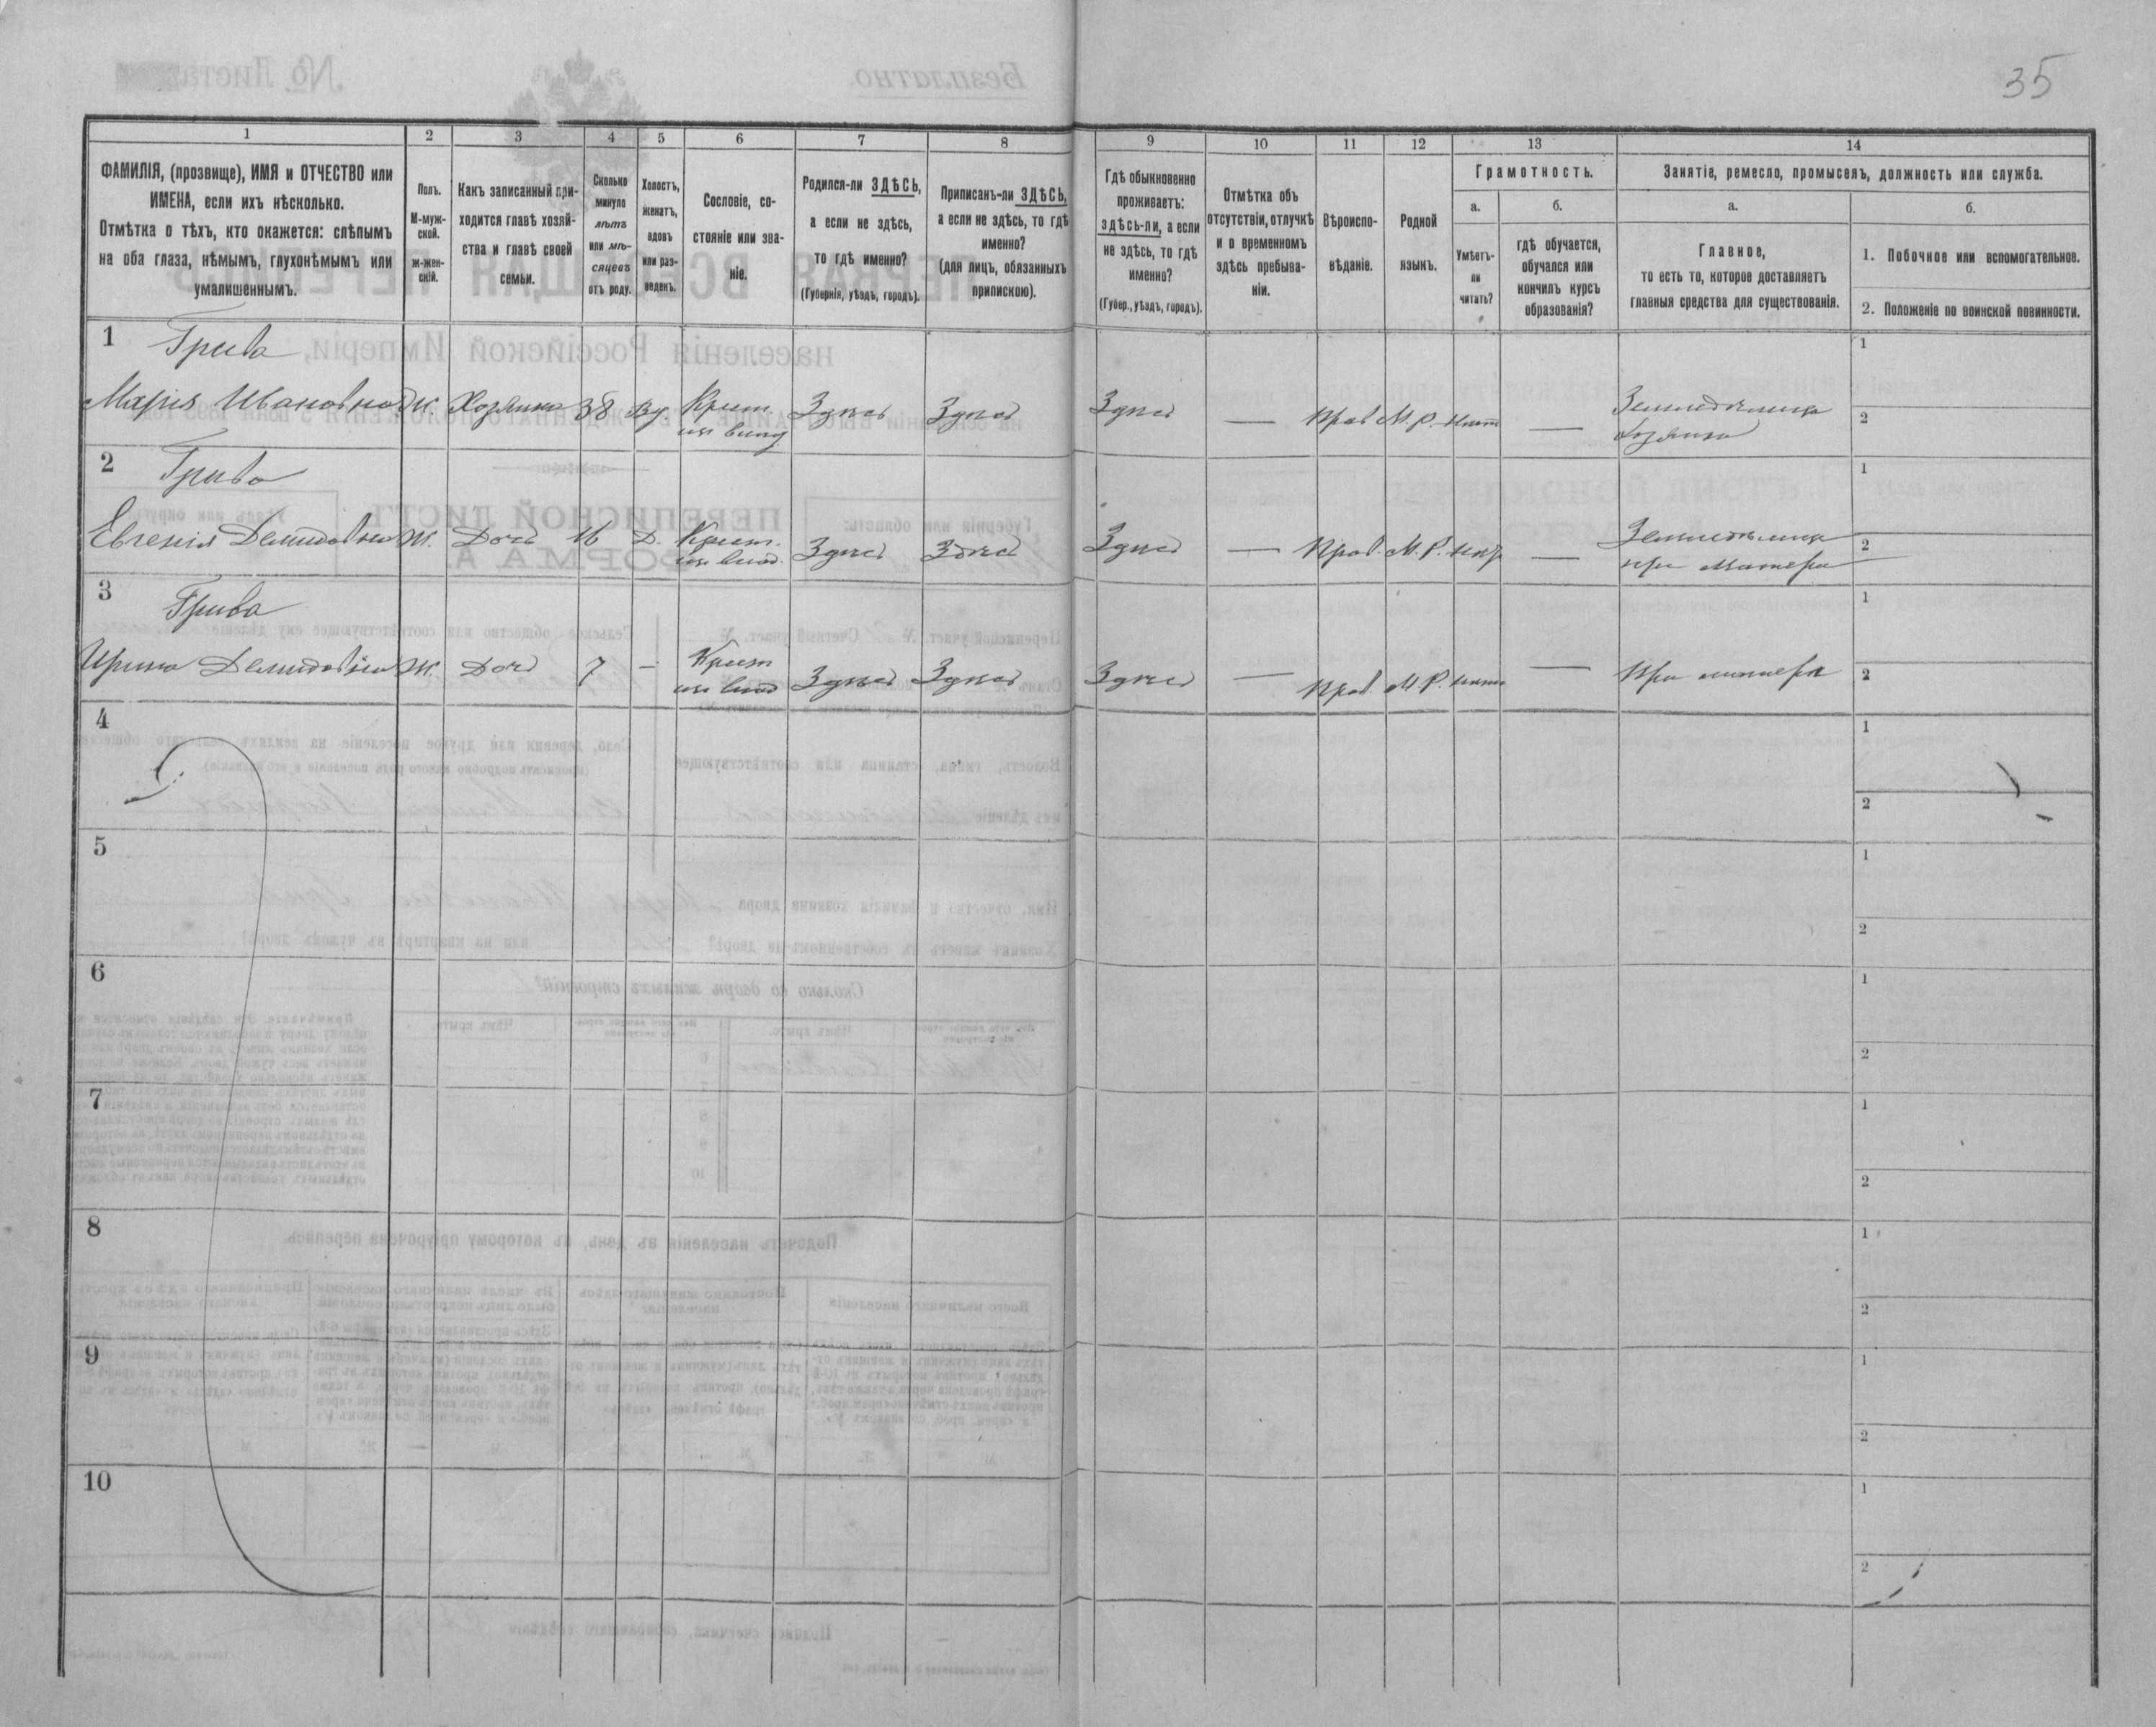 35
1
2
3
4
5
6
7
8
9
10
11
12
13
14
ФАМИЛІЯ, (прозвище), ИМЯ и ОТЧЕСТВО или
ИМЕНА, если ихъ нѣсколько.
Отмѣтка о тѣхъ, кто окажется: слѣпымъ
на оба глаза, нѣмымъ, глухонѣмымъ или
умалишеннымъ.
Полъ.
М-муж-
ской.
ж-жен-
скій.
Какъ записанный при-
ходится главѣ хозяй-
ства и главѣ своей
семьи.
Сколько
минуло
лѣтъ
или мѣ-
сяцевъ
отъ роду.
Холостъ,
женатъ,
вдовъ
или раз-
веденъ.
Сословіе, со-
стояніе или зва-
ніе.
Родился-ли ЗДѢСЬ,
а если не здѣсь,
то гдѣ именно?
(Губернія, уѣздъ, городъ).
Приписанъ-ли ЗДѢСЬ,
а если не здѣсь, то гдѣ
именно?
(для лицъ, обязанныхъ
припискою).
Гдѣ обыкновенно
проживаетъ:
ЗДѢСЬ-ли, а если
не здѣсь, то гдѣ
именно?
(Губер., уѣздъ, городъ).
Отмѣтка объ
отсутствіи, отлучкѣ
и о временномъ
здѣсь пребыва-
ніи.
Вѣроиспо-
вѣданіе.
Родной
языкъ.
Грамотность.
а.
Умѣетъ-
ли
читать?
б.
гдѣ обучается,
обучался или
кончилъ курсъ
образованія?
Занятіе, ремесло, промыселъ, должность или служба.
а.
Главное,
то есть то, которое доставляетъ
главныя средства для существованія.
б.
1. Побочное или вспомогательное.
2. Положеніе по воинской повинности.
1
Грива
Марія Ивановна Ж. Хозяйка 38 Вд. Крест. Здѣсь Здѣсь Здѣсь — Прав М.Р. нѣтъ — Земледѣлица
изъ влад. хозяйка
1
2
2
Грива
Евгенія Демидовна Ж. Дочь 16 Д. Крест. Здѣсь Здѣсь Здѣсь — Прав. М.Р. нѣт — Земледѣлица
изъ влад. при матери
1
2
3
Грива
Ирина Демидовна Ж. Дочь 7 — Крест Здѣсь Здѣсь Здѣсь — Прав. М.Р. нѣтъ — При матери
изъ влад
1
2
4
1
2
5
1
2
6
1
2
7
1
2
8
1
2
9
1
2
10
1
2